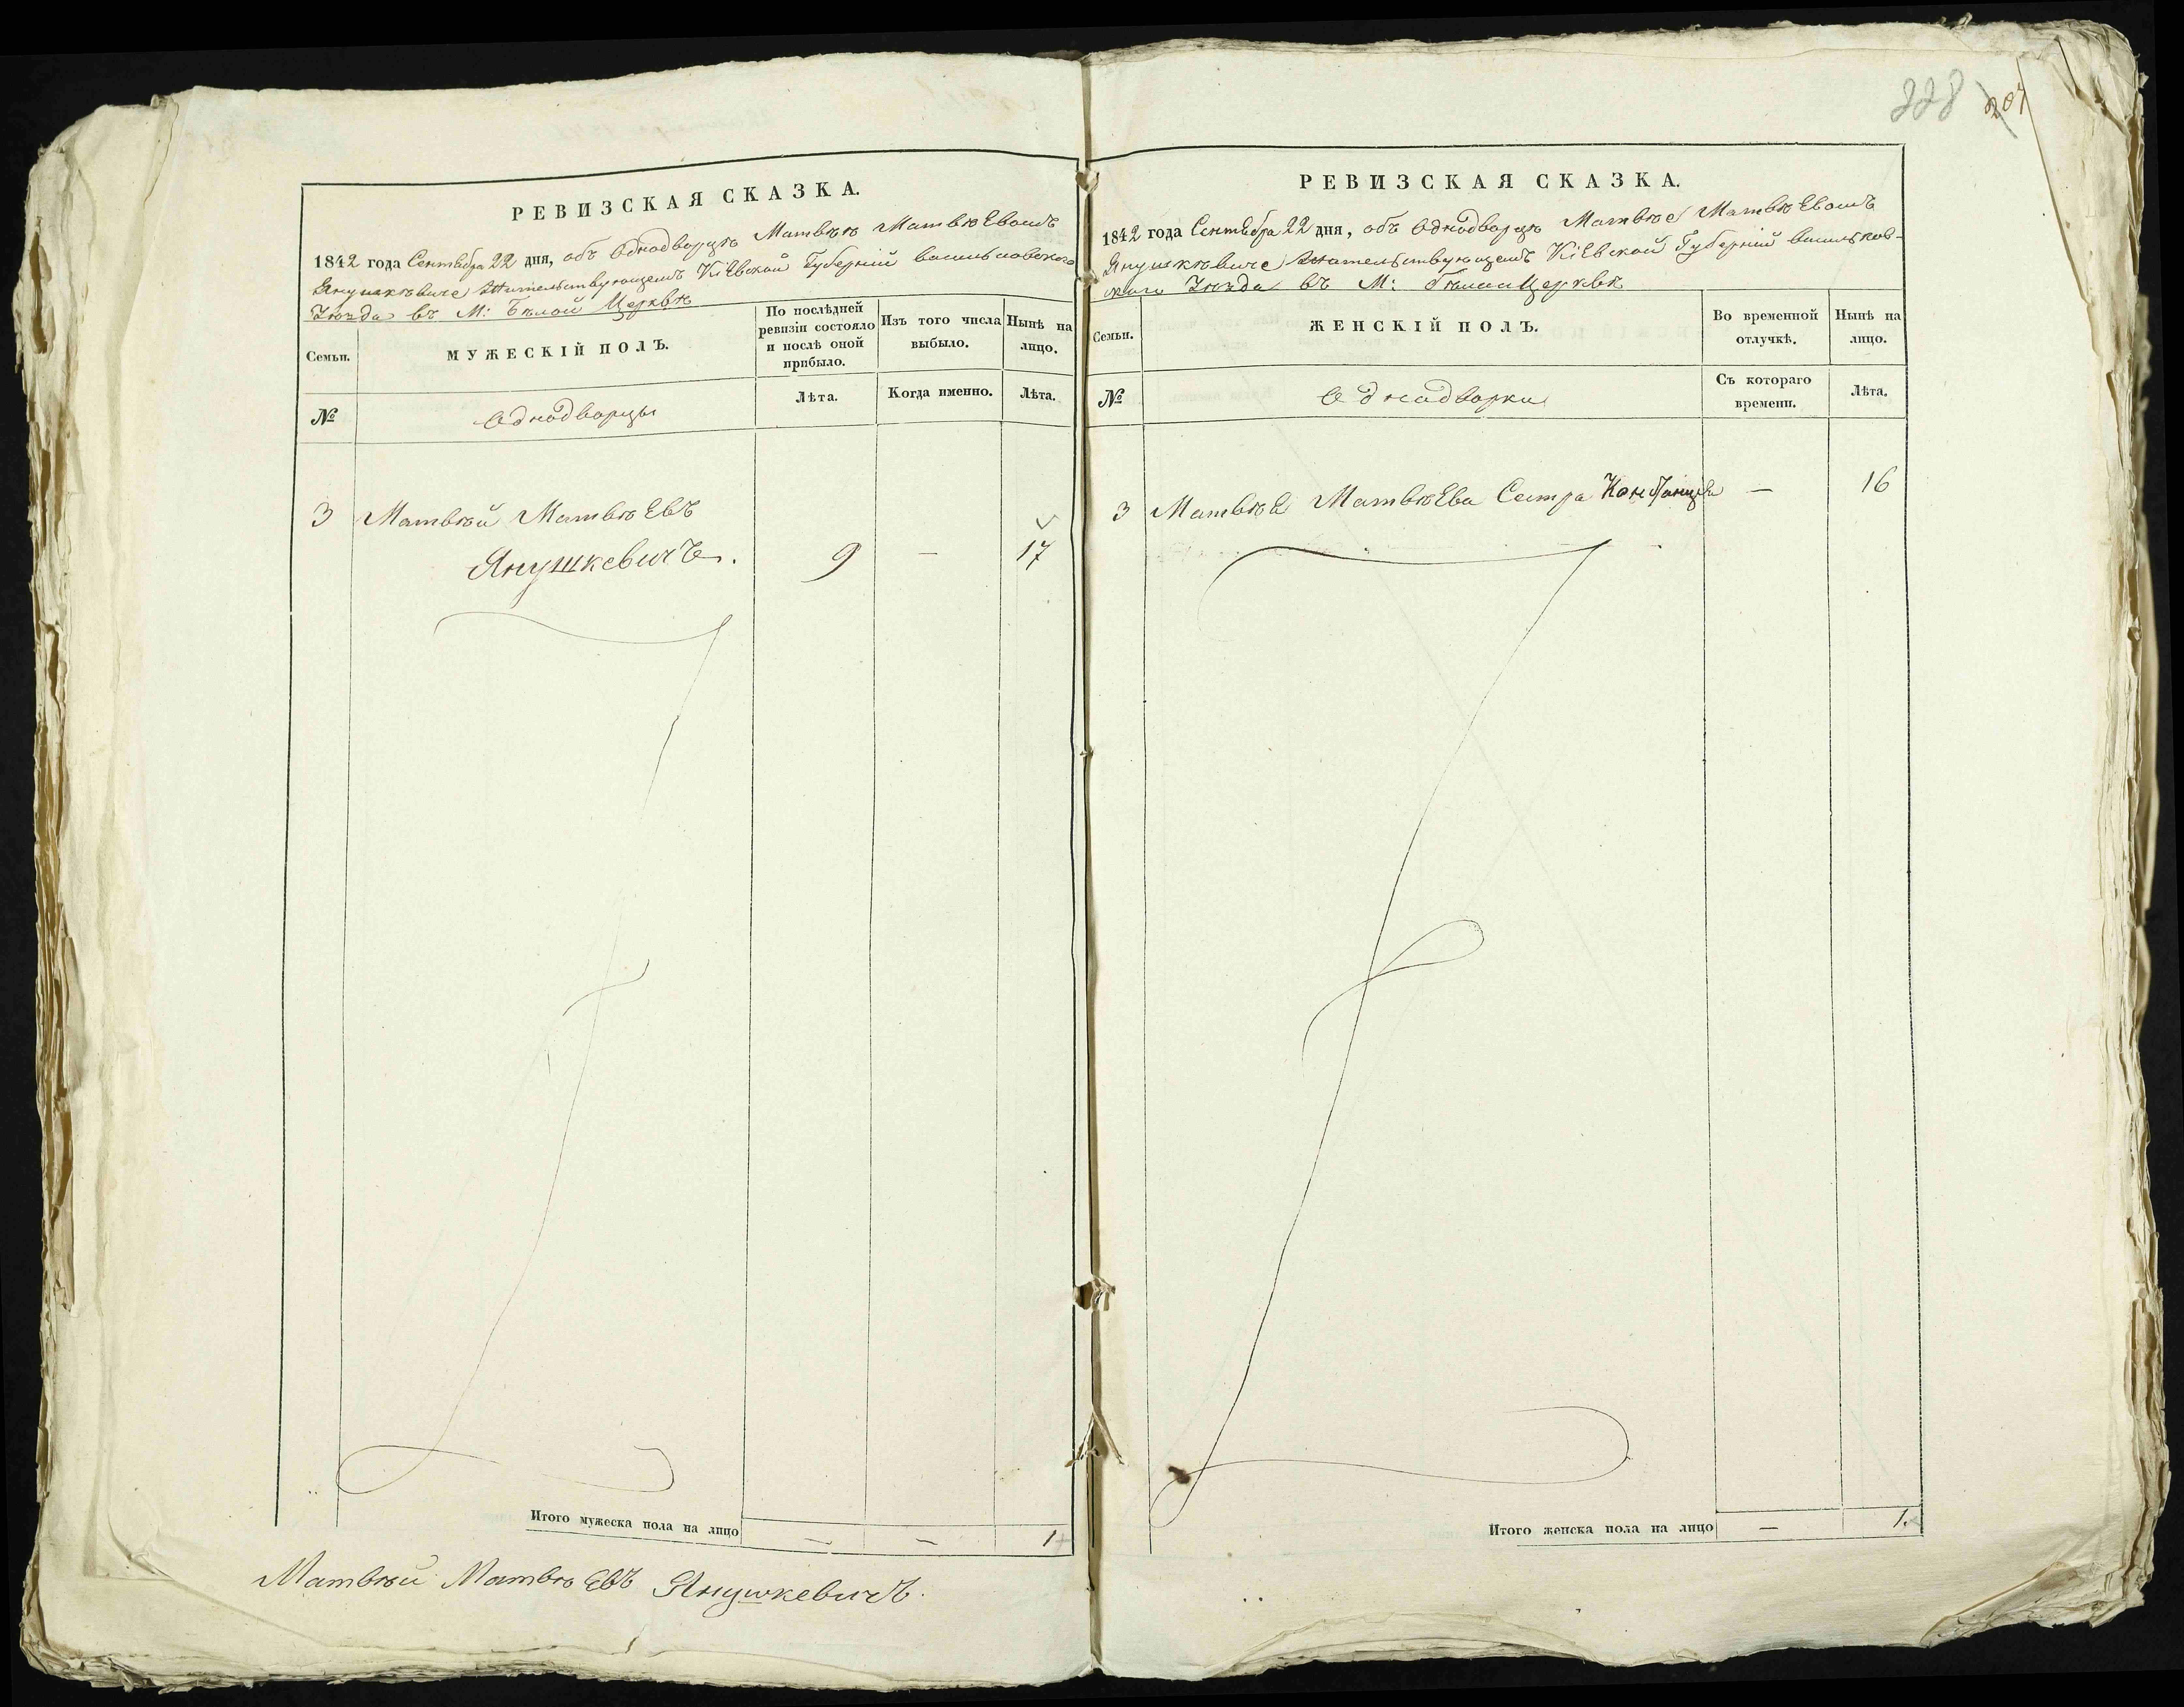 228 207
РЕВИЗСКАЯ СКАЗКА.
1842 года Сентебра 22 дня, объ Однодворцѣ Матвѣѣ Матвѣевомъ
Янушкѣвиче жительствующемъ Кіевской Губерніи васильковского
Уѣзда въ М: Бѣлой Церквѣ
Семьи.
МУЖЕСКІЙ ПОЛЪ.
По послѣдней
ревизіи состояло
и послѣ оной
прибыло.
Изъ того числа
выбыло.
Нынѣ на
лицо.
№
Однодворцы
Лѣта.
Когда именно.
Лѣта.
3 Матвѣй Матвѣевъ
Янушкевичъ. 9 — 17
Итого мужеска пола на лицо — — 1
Матвѣй Матвѣевъ Янушкевичъ.
РЕВИЗСКАЯ СКАЗКА.
1842 года Сентебра 22 дня, объ Однодворцѣ Матвѣе Матвѣевомъ
Янушкѣвиче жительствующемъ Кіевской Губерніи васильков-
ского Уѣзда въ М: бѣлой Церквѣ
Семьи.
ЖЕНСКІЙ ПОЛЪ.
Во временной
отлучкѣ.
Нынѣ на
лицо.
№
Однодворки
Съ котораго
времени.
Лѣта.
3 Матвѣя Матвѣева Сестра — 16
Итого женска пола на лицо — 1.